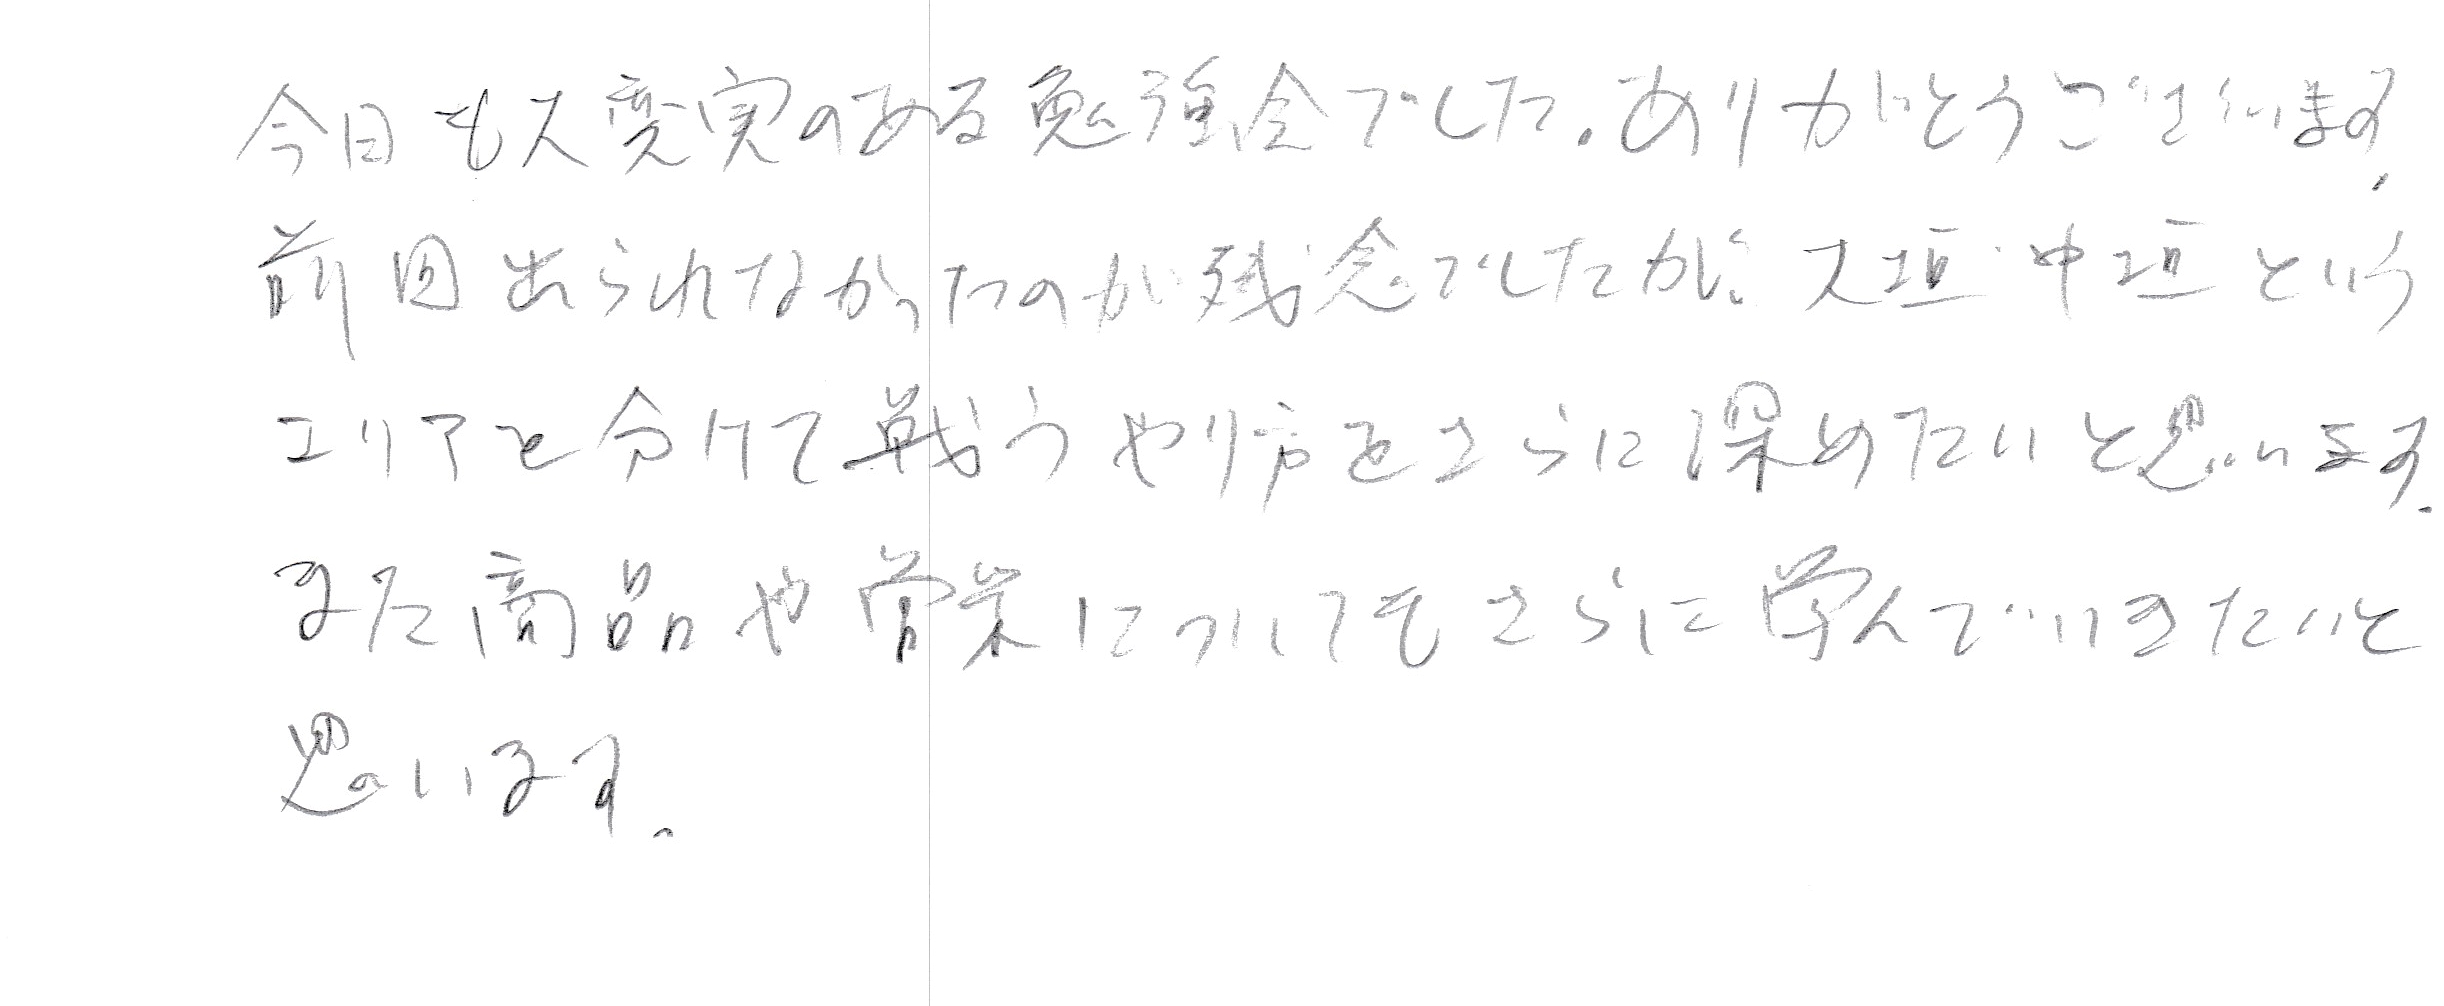 今日も大変実のある勉強会でした。ありがとうございます。
前回出られなかったのが残念でしたが、大垣・中垣という
エリアを分けて戦うやり方をさらに深めたいと思います。
また商品や営業についてもさらに学んでいきたいと
思います。